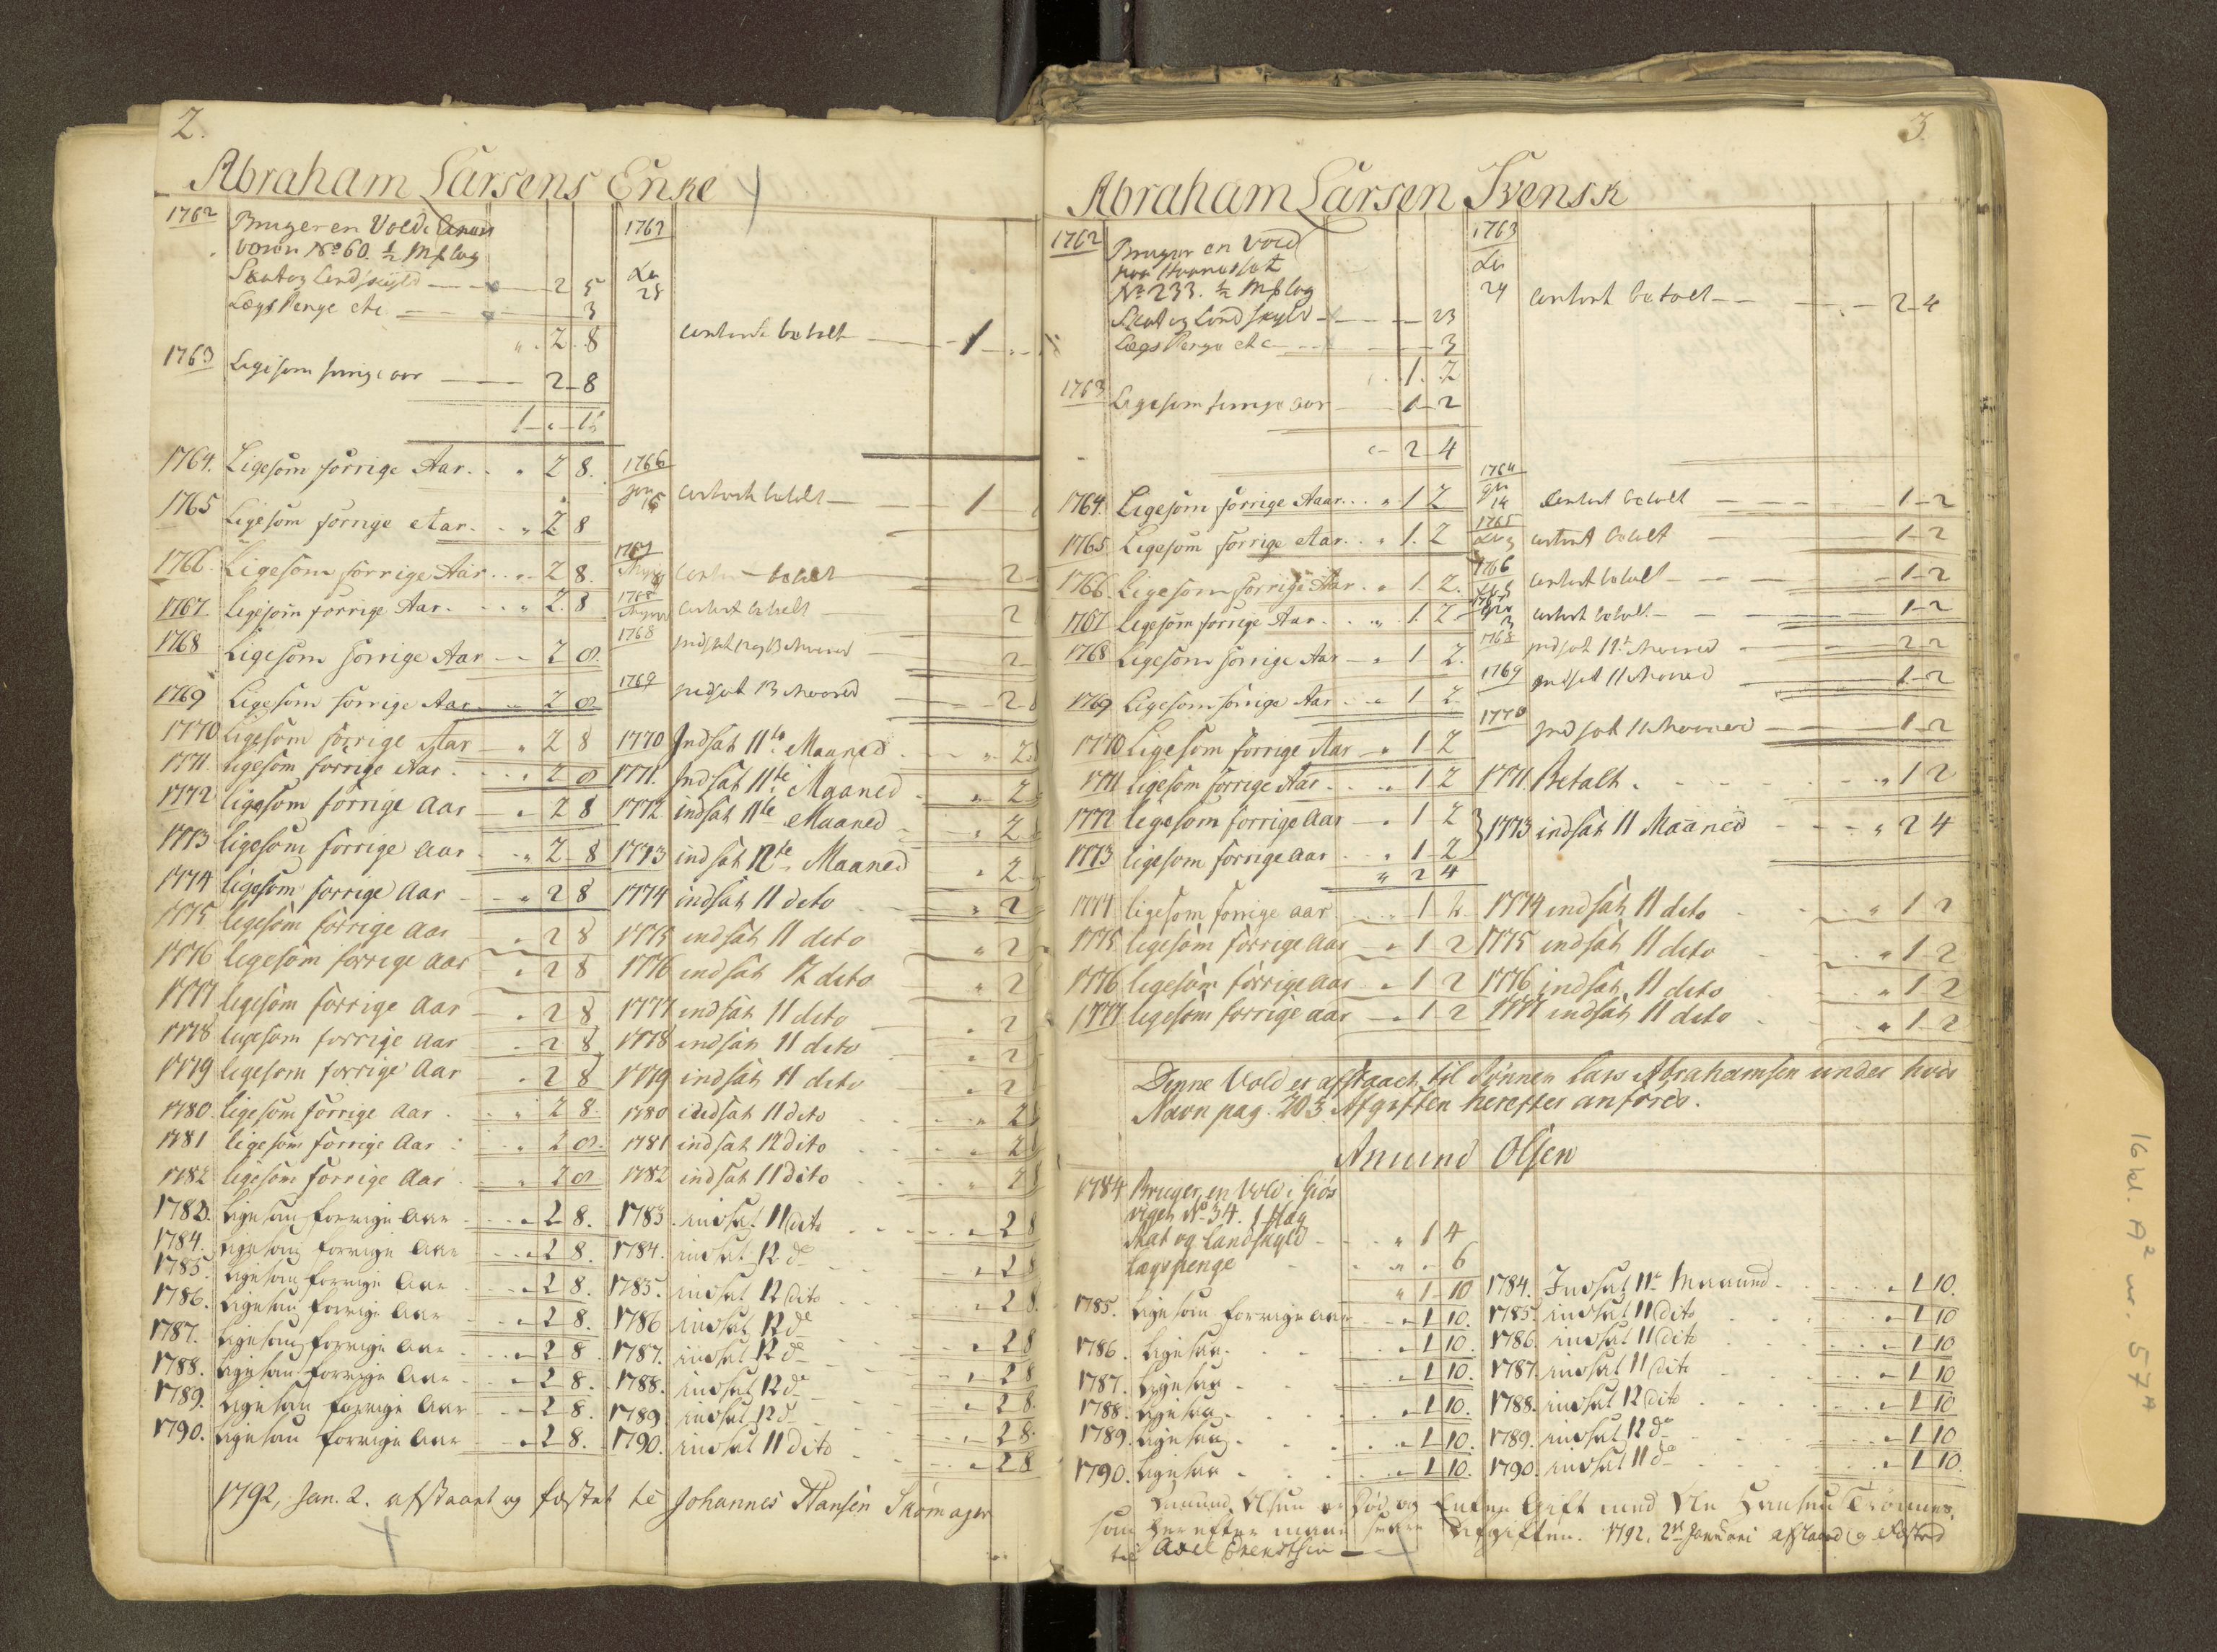 2.
Abraham Larsens Enke
1762 Bruger en Vold i
No 60. 1/2 Mƒlag
Skat og Landskyld 2 5
Lægs Penge etc 3
" 2. 8
1763 Ligesom forrige aar 2 8
1
1764. Ligesom forrige Aar. . " 2 8.
1765 Ligesom forrige Aar. . " 2 8
1766. Ligesom forrige Aar. . " 2 8.
1767. Ligesom forrige Aar. . . " 2. 8
1768 Ligesom forrige Aar 2 8.
1769 Ligesom forrige Aar " 2 8.
1770 Ligesom forrige Aar " 2 8
1771. ligesom forrige Aar. . . " 2 8
1772 ligesom forrige Aar " 2 8
1773 ligesom forrige Aar " 2 8
1774 ligesom forrige Aar " 2 8
1775 ligesom forrige Aar " 2 8
1776 ligesom forrige Aar " 2 8
1777 ligesom forrige Aar " 2 8
1778 ligesom forrige Aar " 2 8
1779 ligesom forrige Aar " 2 8
1780. ligesom forrige Aar . " 2 8.
1781 ligesom forrige Aar . " 2 8.
1782 ligesom forrige Aar " 2 8
1783. ligesom forrige Aar " 2 8.
1784. ligesom forrige Aar " 2 8.
1785. ligesom forrige Aar " 2 8.
1786. ligesom forrige Aar " 2 8.
1787. ligesom forrige Aar " 2 8.
1788. ligesom forrige Aar " 2 8.
1789. ligesom forrige Aar " 2 8.
1790. ligesom forrige Aar " 2 8.
1763
28 contant betalt 1
1766
contant betalt 1
1767
contant betalt 2
1768
contant betalt 2
1768 indsat 12 og 13 Maaned 2
1769 indsat 13 Maaned 2
1770 Indsat 11te Maaned " 2
1771. Indsat 11te Maaned " 2
1772 indsat 11te Maaned " 2
1773 indsat 12te Maaned " 2
1774 indsat 11 dito " 2
1775 indsat 11 dito " 2
1776 indsat 12 dito " 2
1777 indsat 11 dito " 2
1778 indsat 11 dito " 2
1779 indsat 11 dito " 2
1780 indsat 11 dito " 2
1781 indsat 12 dito " 2
1782 indsat 11 dito " 2
1783. indsat 11 dito " 2 8
1784. indsat 12 do " 2 8
1785. indsat 12 dito " 2 8.
1786 indsat 12 do " 2 8
1787. indsat 12 do " 2 8
1788. indsat 12 do " 2 8.
1789 indsat 12 do " 2 8.
1790. indsat 11 dito " 2 8
1792, Jan. 2. afstaaet og fæstet til Johannes Hansen Skomager
3.
Abraham Larsen Svensk
1762 Bruger en Vold
paa
No 233. 1/2 Mƒlag
Skat og Landskyld 23
Lægs Penge etc 3
. 1. 2
1763 Ligesom forrige aar 1 2
" 2 4
1764. Ligesom forrige Aaar. . . " 1 2
1765 Ligesom forrige Aar. . " 1. 2
1766. Ligesom forrige Aar. " 1 2.
1767 Ligesom forrige Aar. . . " 1. 2
1768 Ligesom forrige Aar " 1 2.
1769 Ligesom forrige Aar . " 1 2
1770 Ligesom forrige Aar " 1 2
1771 ligesom forrige Aar. . . " 1 2
1772 ligesom forrige Aar " 1 2
1773 ligesom forrige Aar " 1 2
" 2 4
1774 ligesom forrige aar " 1 2
1775 ligesom forrige Aar " 1 2
1776 ligesom forrige aar " 1 2
1777 ligesom forrige aar " 1 2
1763
24 contant betalt 2 4
1764
14 Contant betalt 1 2
1765
contant betalt 1 2
1766
contant betalt 1 2
1767
3 contant betalt 1 2
1768 indsat 11t Maaned 2 2
1769 indsat 11 Maaned 1 2
1770 indsat 11 Maaned 1 2
1771 Betalt. " 1 2
1773 indsat 11 Maaned " 2 4
1774 indsat 11 dito " 1 2
1775 indsat 11 dito " 1 2
1776 indsat 11 dito " 1 2
1777 indsat 11 dito " 1 2
Denne Vold er afstaaet til Sønnen Lars Abrahamsen under hvis
Navn pag. 203 Afgiften herefter anføres.
Amund Olsen
1784 Bruger en Vold i Giøs
vigen No 34. 1 ƒlag
Skat og Landskyld " 1 4
Lægspenge " " 6
" 1 10
1785. ligesom forrige Aar " 1 10.
1786. ligesaa. " 1 10.
1787. ligesaa " 1 10.
1788. ligesaa " 1 10.
1789. ligesaa " 1 10.
1790. ligesaa " 1 10.
1784. Indsat 11te Maaned. " 1 10.
1785. indsat 11 dito " 1 10
1786. indsat 11 dito " 1 10
1787. indsat 11 dito " 1 10
1788. indsat 12 dito " 1 10
1789. indsat 12 do " 1 10
1790. indsat 11 do " 1 10.
Amund Olsen er død og Enken Gift med Ole Hansen
som herefter maae svare Afgiften. 1792, 2den Januari afstaaed og Fæsted
til Axel
16 kl. A2 nr. 57A